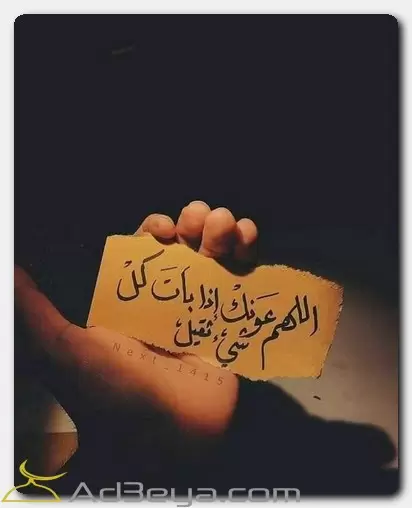 اللهم عونك إذا بات كل
شيء ثقيل
Next_1415
Ad3eya.com